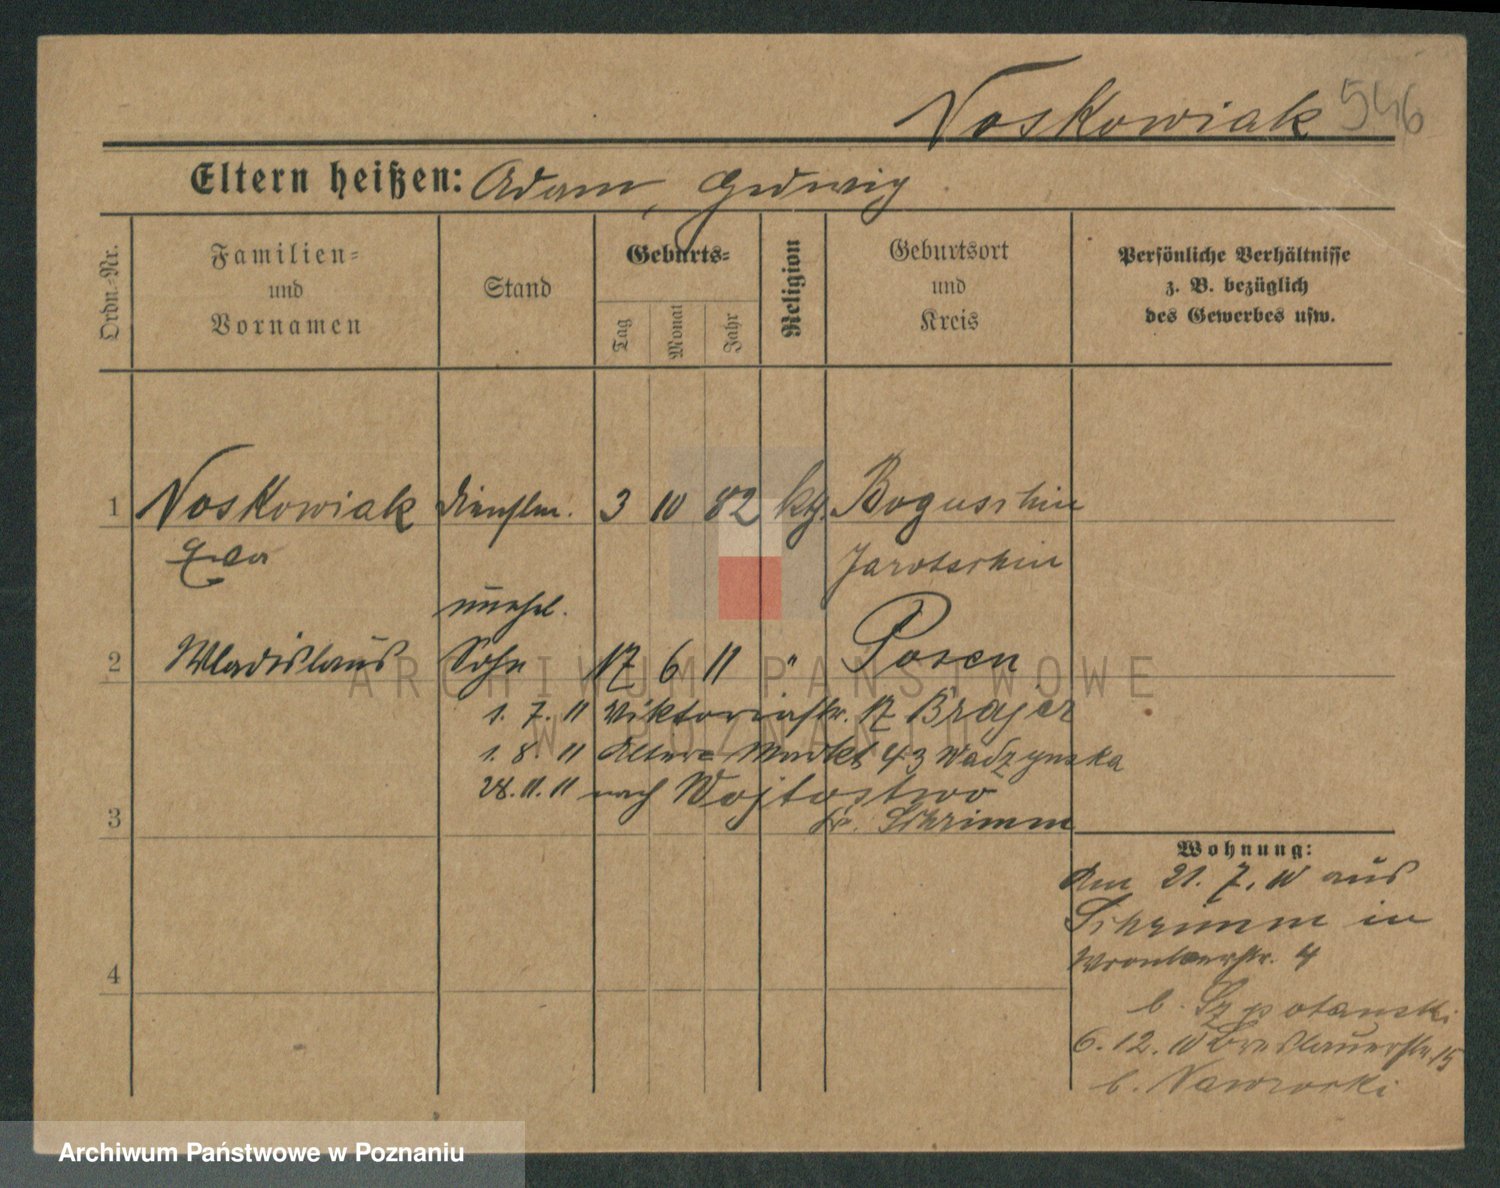 Noskowiak 546
Eltern heißen: Adam, Hedwig
Ordn.-Nr.
Familien-
und
Vornamen
Stand
Geburts-
Tag
Monat
Jahr
Religion
Geburtsort
und
Kreis
Persönliche Verhältnisse
z. B. bezüglich
des Gewerbes usw.
1 Noskowiak Dienstm. 3 10 82 kth. Boguschin
Eva Jarotschin
unehel.
2 Wladislaus Sohn 17 6 11 " Posen
1. 7. 11 Viktoriastr. 17 Brajer
1. 8. 11 Alter Markt 43 Wadzynska
28. 11. 11 nach Wojtostwo
3 Kr. Schrimm
Wohnung:
Am 21. 7. 10 aus
Schrimm in
Wronkerstr. 4
4
b. Szpotanski
6. 12. 10 Breslauerstr. 15
b. Nawrocki
ARCHIWUM PAŃSTWOWE
W POZNANIU
Archiwum Państwowe w Poznaniu